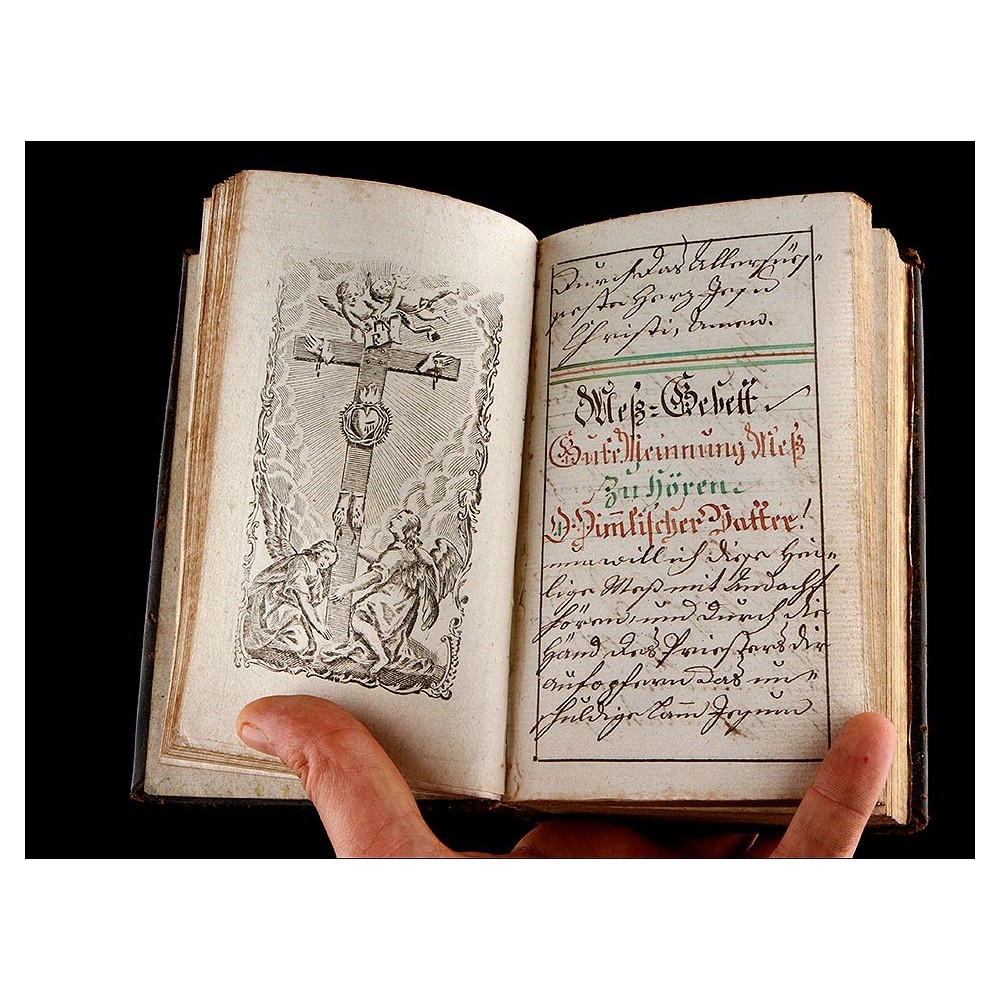 Durch das Allersüß=
ste Herz Jesu
Christi, Amen.
Meß=Gebett
Gute Meinnung Meß
zu hören.
O Him̅lischer Vatter!
will ich diese Hei=
lige Meß mit Andacht
hören, und durch die
Händ des Priesters dir
aufopfern das un=
schuldige Lam̅ Jesum